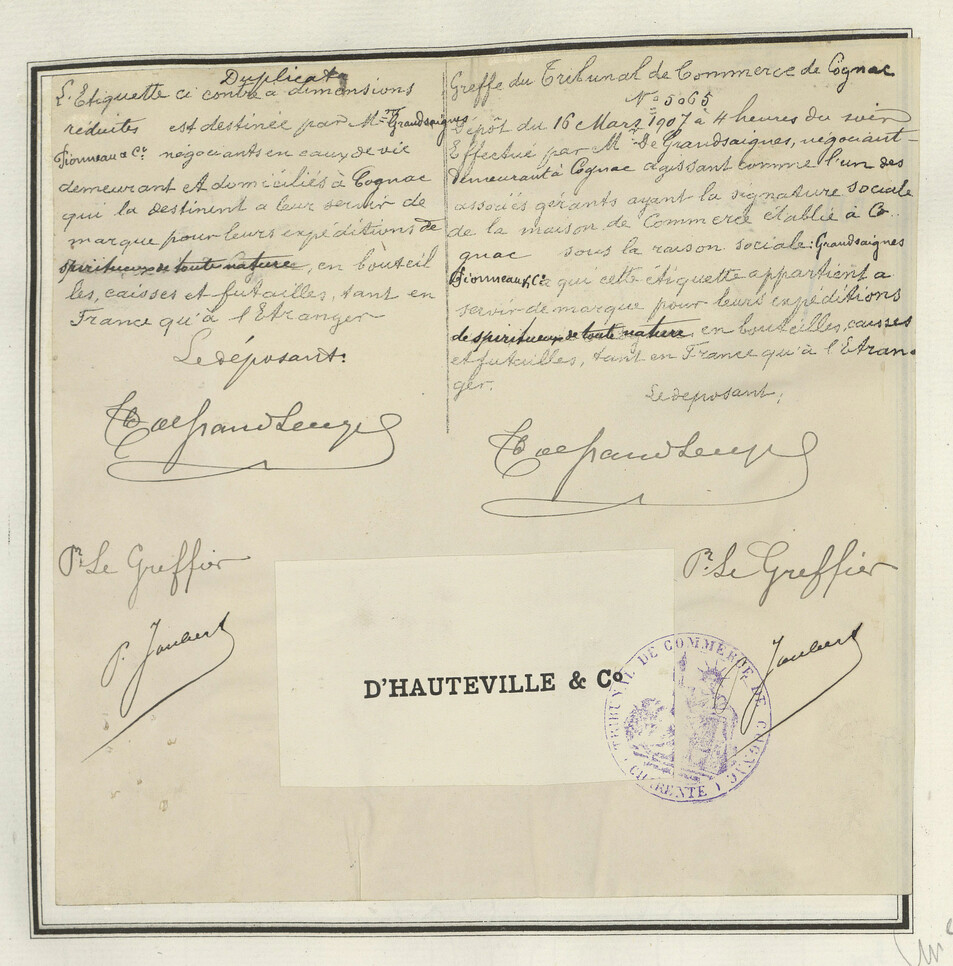 Duplicata
L'Etiquette ci contre a dimensions
réduites est destinée par Mrs Grandsaignes
Fionneau & Ce négociants en eaux de vie
demeurant et domiciliés à Cognac
qui la destinent a leur servir de
marque pour leurs expéditions de
spiritueux de toute nature, en bouteil
les, caisses et futailles, tant en
France qu'à l'Etranger
Le déposant:
P.r Le Greffier
P. Joubert
Greffe du Tribunal de Commerce de Cognac
No 5065
Dépôt du 16 Mars 1907 à 4 heures du soir
Effectué par Mr De Grandsaignes, négociant
Demeurant à Cognac agissant comme l'un des
associés gérants ayant la signature sociale
de la maison de Commerce établie à Co..
gnac sous la raison sociale: Grandsaignes
Fionneau & Ce qui cette étiquette appartient a
servir de marque pour leurs expéditions
de spiritueux de toute nature, en bouteilles, caisses
et futailles, tant en France qu'à l'Etran-
ger.
Le déposant;
P.r Le Greffier
Joubert
D'HAUTEVILLE & Co
TRIBUNAL DE COMMERCE DE COGNAC
(CHARENTE)